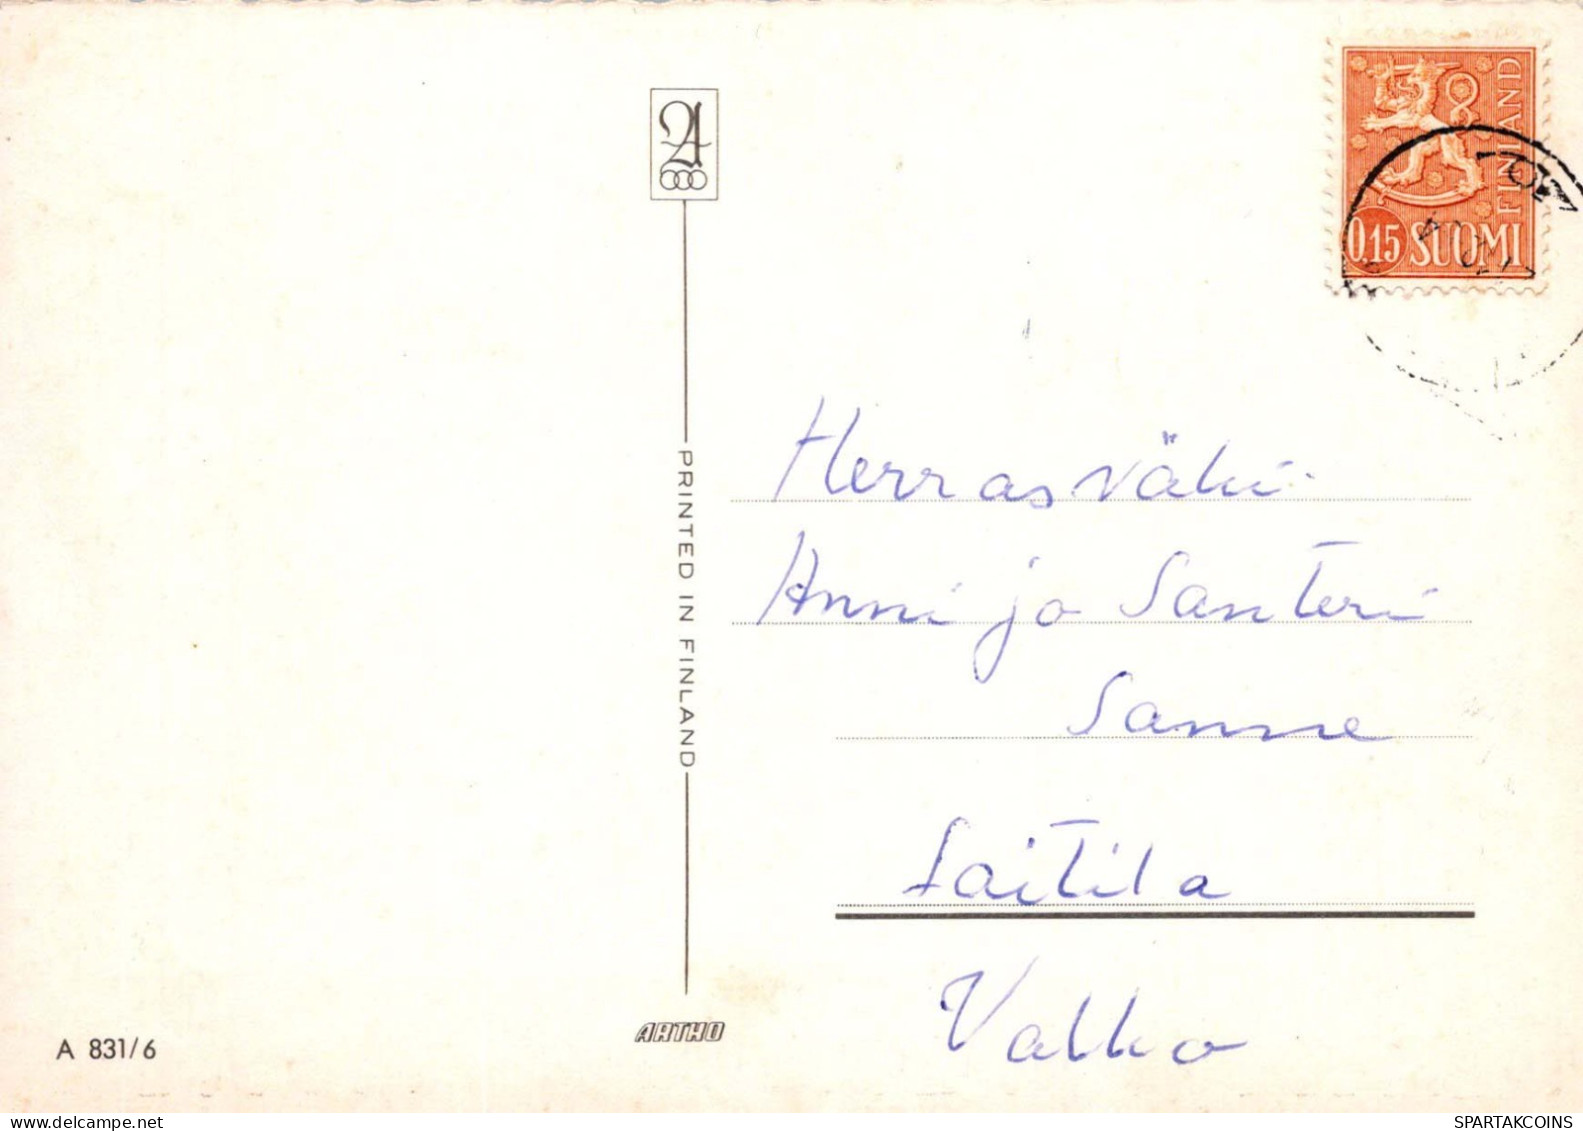 FINLAND
0.15 SUOMI
A
PRINTED IN FINLAND
Herrasväki
Anni ja Santeri
Sanne
Laitila
Valko
ARTHO
A 831/6
delcampe.net
SPARTAKCOINS